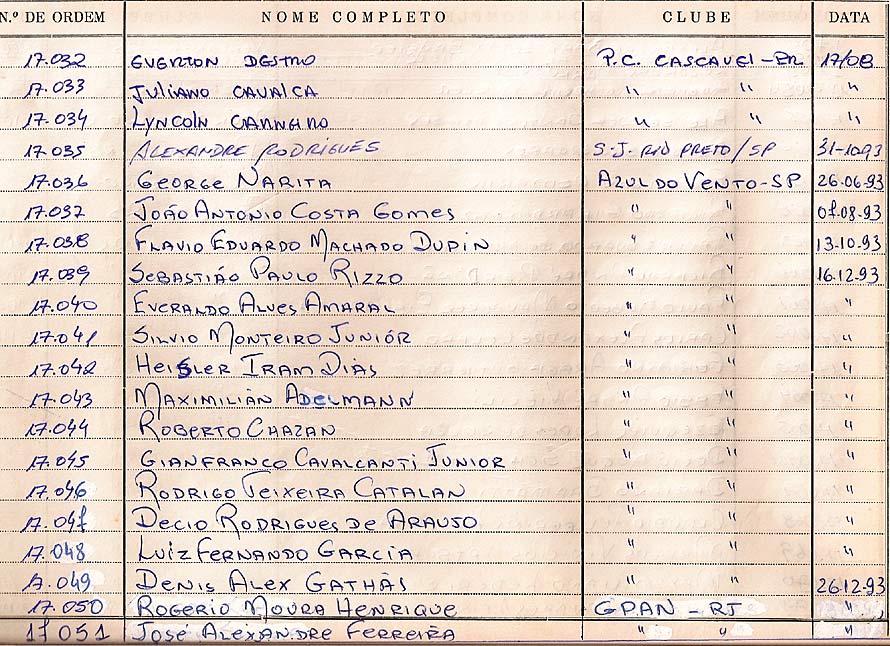 N.º DE ORDEM NOME COMPLETO CLUBE DATA
17.032 EVERTON DESTRO P.C. CASCAVEL-PR 17/08
17.033 JULIANO CAVALCA " " "
17.034 LYNCOLN CARNEIRO " " "
17.035 ALEXANDRE RODRIGUES S.J. RIO PRETO/SP 31-10.93
17.036 GEORGE NARITA AZUL DO VENTO-SP 26.06.93
17.037 JOÃO ANTONIO COSTA GOMES " " 07.08.93
17.038 FLAVIO EDUARDO MACHADO DUPIN " " 13.10.93
17.039 SEBASTIÃO PAULO RIZZO " " 16.12.93
17.040 EVERALDO ALVES AMARAL " " "
17.041 SILVIO MONTEIRO JUNIÓR " " "
17.042 HEISLER IRAM DIAS " " "
17.043 MAXIMILIAN ADELMANN " " "
17.044 ROBERTO CHAZAN " " "
17.045 GIANFRANCO CAVALCANTI JUNIOR " " "
17.046 RODRIGO TEIXEIRA CATALAN " " "
17.047 DECIO RODRIGUES DE ARAUJO " " "
17.048 LUIZ FERNANDO GARCIA " " "
17.049 DENIS ALEX GATHÁS " " 26.12.93
17.050 ROGERIO MOURA HENRIQUE GPAN - RJ "
17 051 JOSÉ ALEXANDRE FERREIRA " " "